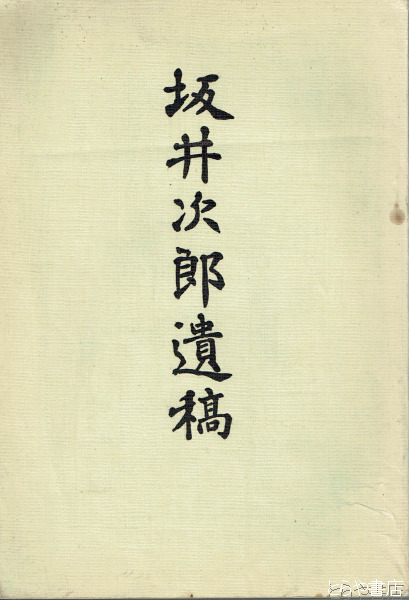 坂井次郎遺稿
とらや書店